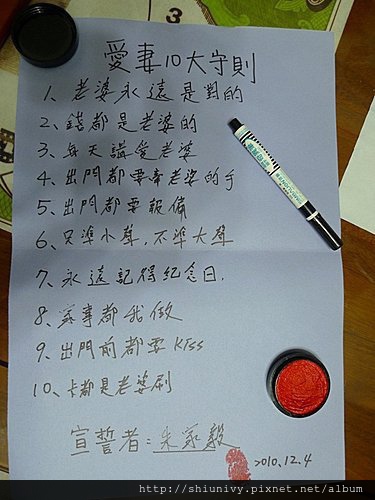 愛妻10大守則
1、老婆永遠是對的
2、錢都是老婆的
3、每天講愛老婆
4、出門都要牽老婆的手
5、出門都要報備
6、只準小聲,不準大聲
7、永遠記得紀念日.
8、家事都我做
9、出門前都要KISS
10、卡都是老婆刷
宣誓者:朱家毅
2010.12.4
http://shiunivy.pixnet.net/album